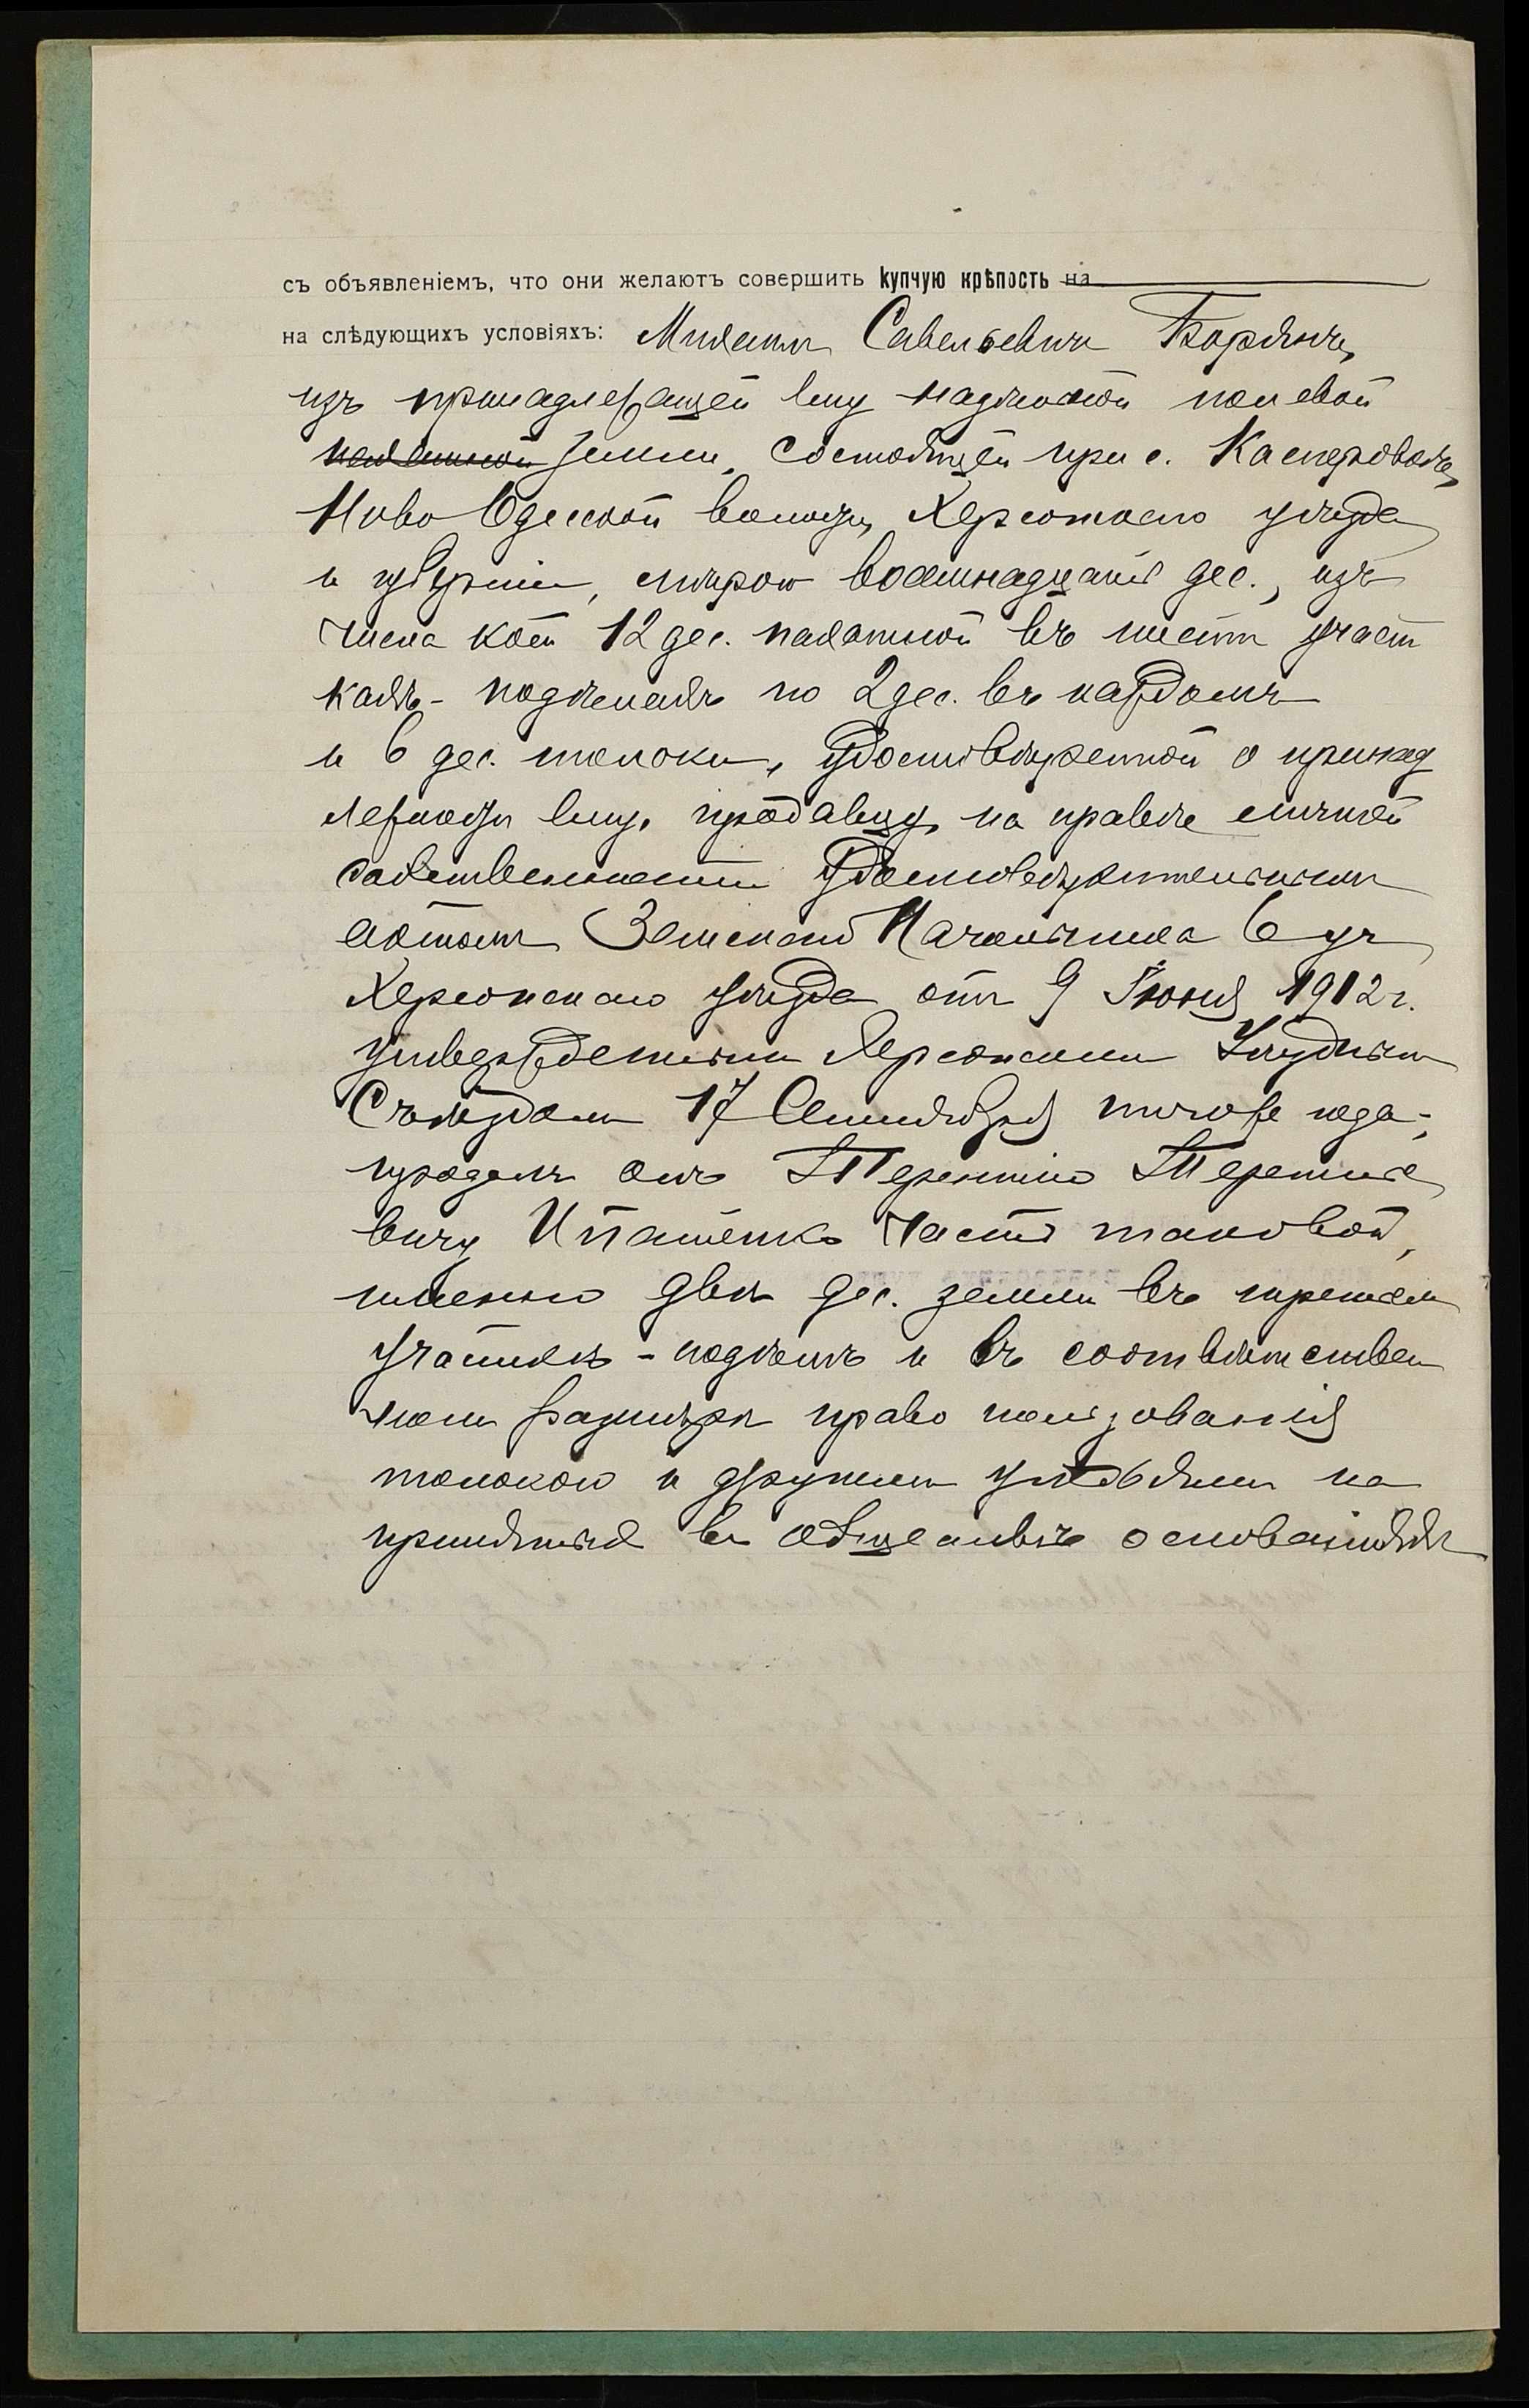 съ объявленіемъ, что они желаютъ совершить купчую крѣпость на
на слѣдующихъ условіяхъ: Савельевичъ
изъ принадлежащей ему надѣльной полевой
земли, состоящей при с. Касперовкѣ,
Ново Одесской волости, Херсонскаго уѣзда
и губерніи, мѣрою восемнадцать дес., изъ
числа коей 12 дес. пахатной въ шести участ
кахъ - подѣлахъ по 2 дес. въ каждомъ
и 6 дес. толоки, удостовѣренной о принад
лежности ему, продавцу, на правѣ личной
собственности удостовѣрительнымъ
актомъ Земскаго Начальника 6 уч
Херсонскаго уѣзда отъ 9 Іюня 1912 г.
утвержденнымъ Херсонскимъ Уѣзднымъ
Съѣздомъ 17 Сентября того же года,
продалъ онъ Терентію Терентье
вичу Ипатенко часть таковой,
именно двѣ дес. земли въ третьемъ
участкѣ - подѣлѣ и въ соотвѣтствен
номъ размѣрѣ право пользованія
толокою и другими угодьями на
принятыхъ въ обществѣ основаніяхъ